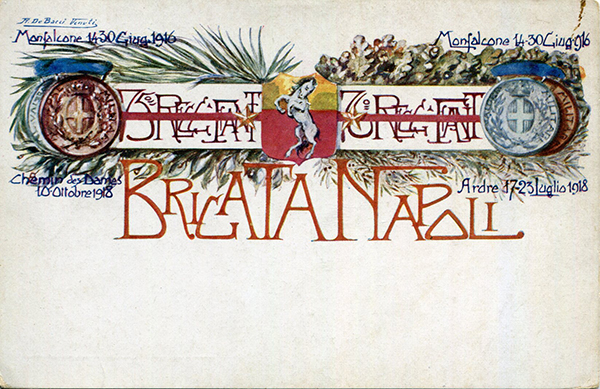 A. De Bacci Venuti
Monfalcone 14-30 Giug. 1916
Monfalcone 14-30 Giug. 1916
75mo REGG FANT
76mo REGG FANT
Chemin des Dames
10 Ottobre 1918
Ardre 17-23 Luglio 1918
BRIGATA NAPOLI